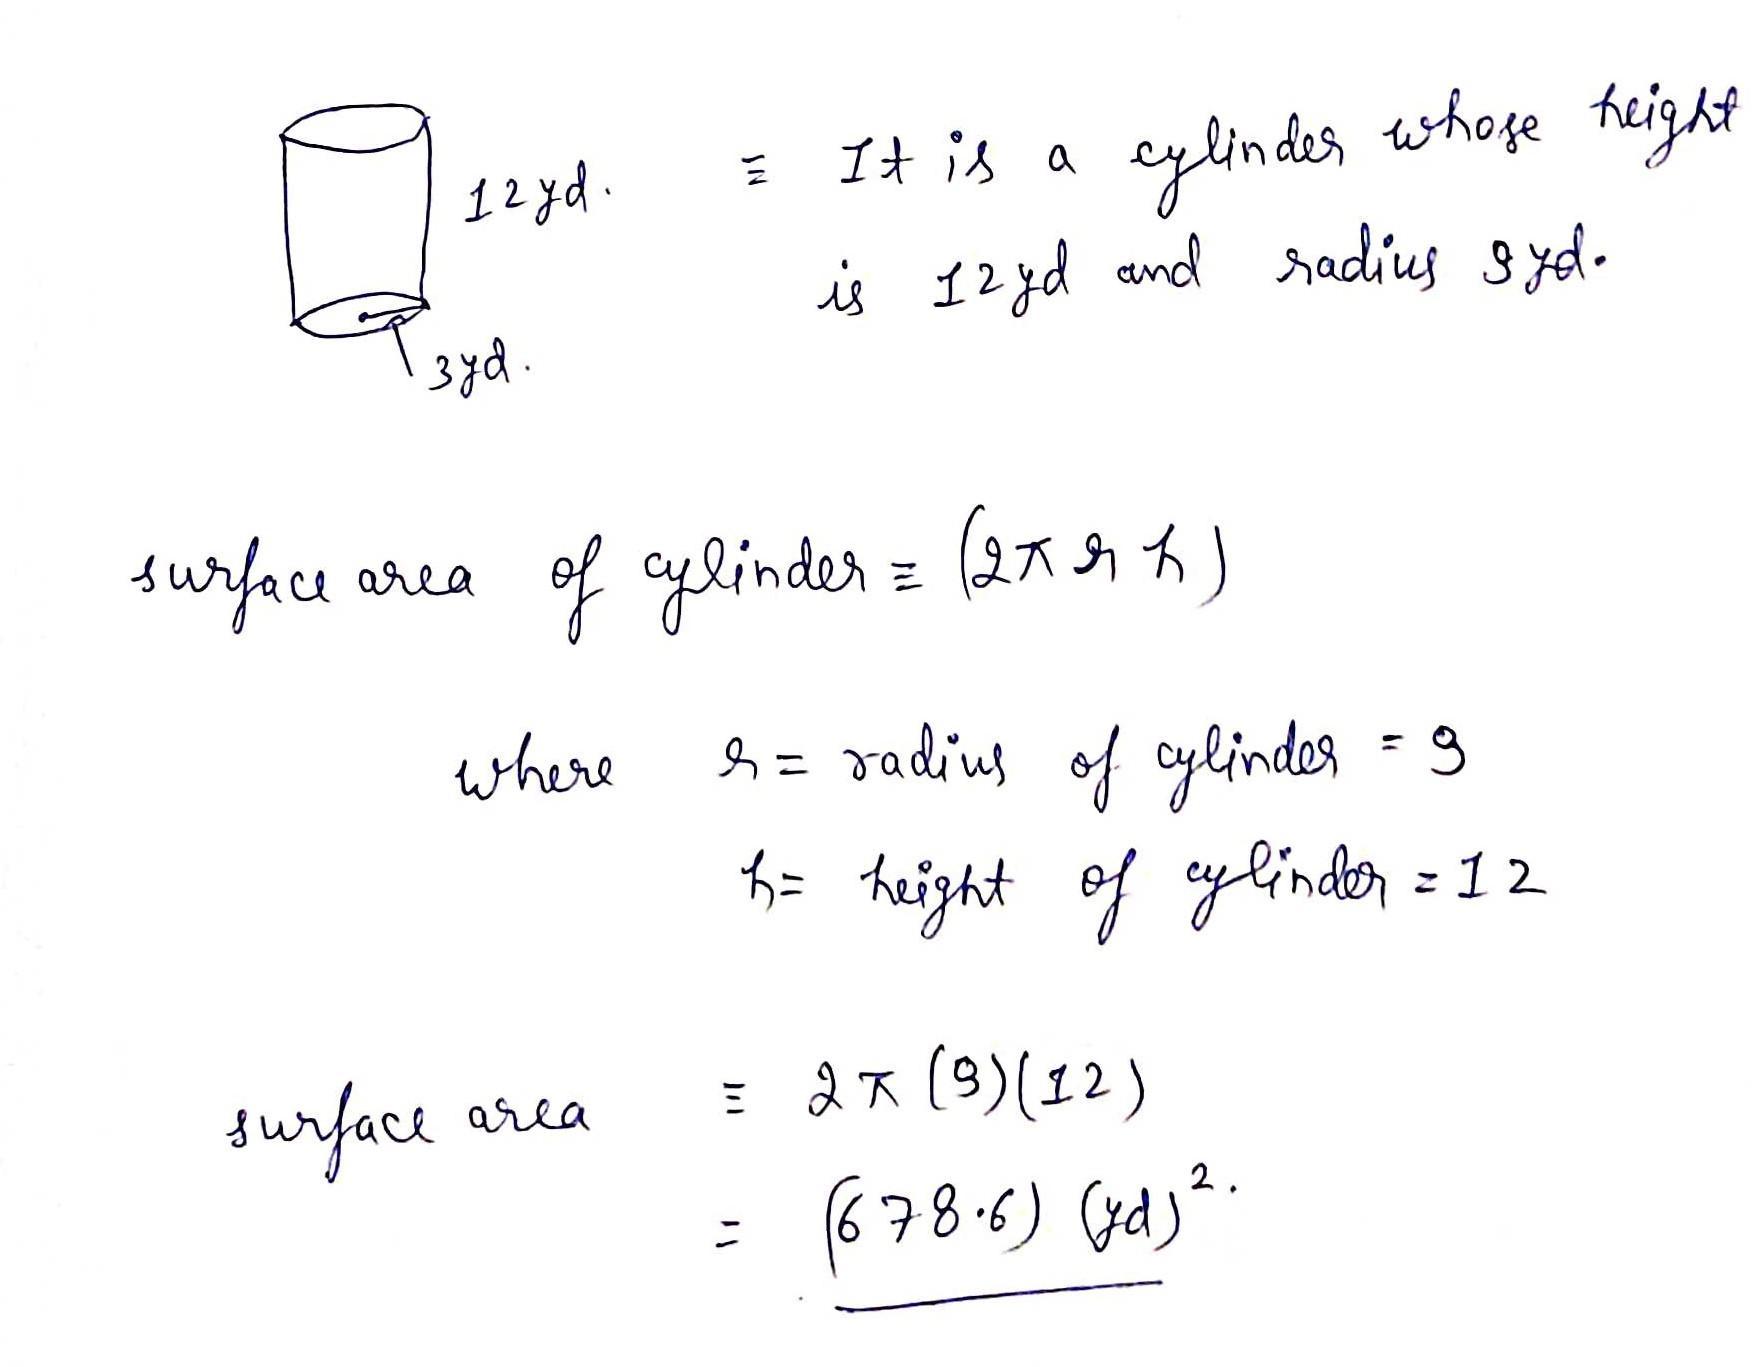 12yd.
≡ It is a cylinder whose height
is 12yd and radius 9yd.
3yd.
surface area of cylinder ≡ (2πrh)
where r = radius of cylinder = 9
h = height of cylinder = 12
surface area ≡ 2π(9)(12)
= (678.6) (yd)².